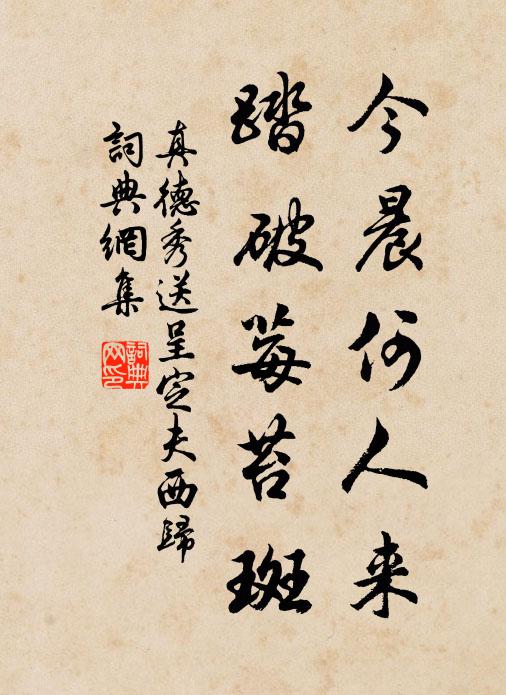 今晨何人来
踏破莓苔斑
真德秀送呈定夫西歸
詞典網集
詞典网印